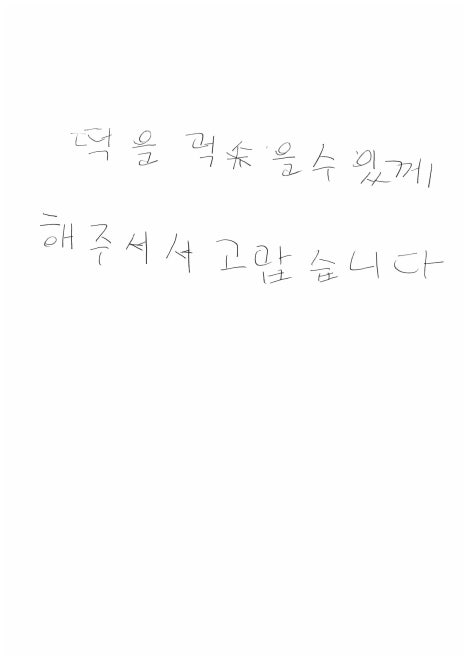 떡을 을수있께
해주서서고맙습니다